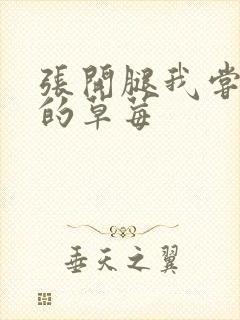 張開腿我嘗
的草莓
垂天之翼